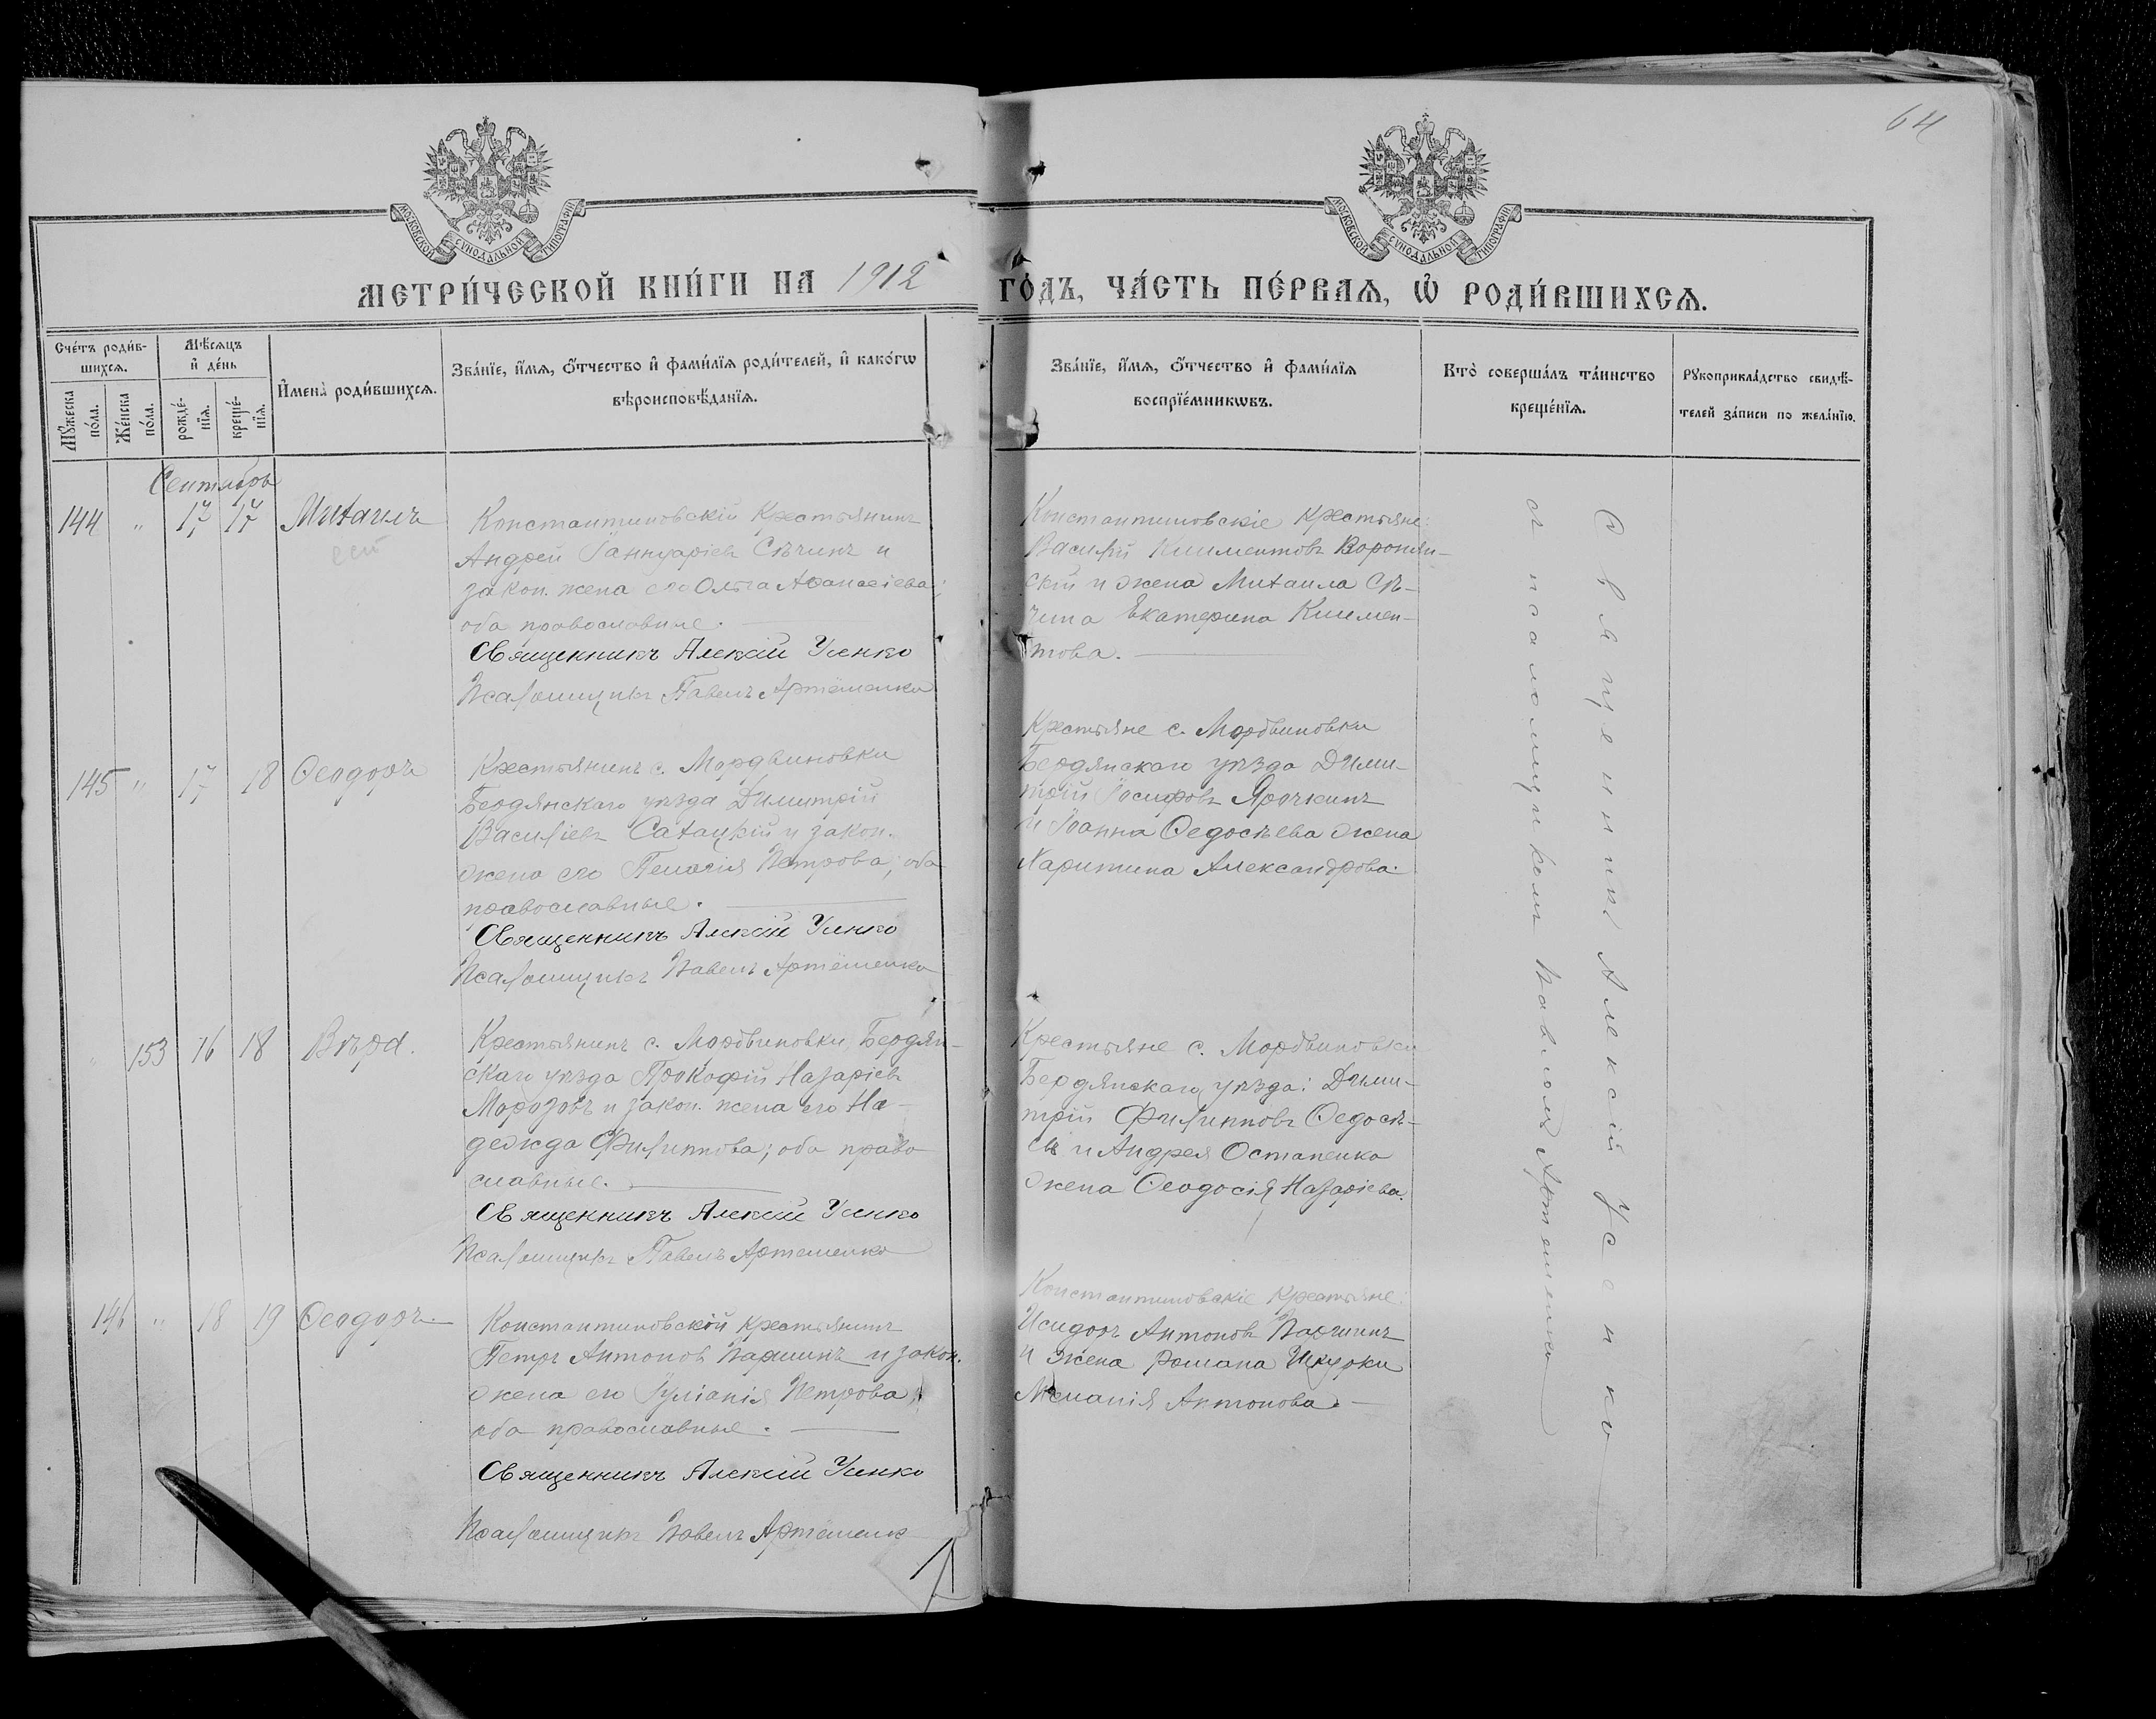 64
МОСКОВСКОЙ СѴНОДАЛЬНОЙ ТИПОГРАФІИ
МОСКОВСКОЙ СѴНОДАЛЬНОЙ ТИПОГРАФІИ
МЕТРИ́ЧЕСКОЙ КНИ́ГИ НА 1912 ГО́ДЪ, ЧА́СТЬ ПЕ́РВАЯ, Ѡ҆ РОДИ́ВШИХСЯ.
Сче́тъ роди́в-
шихся.
Мꙋ́жеска по́ла.
Же́нска по́ла.
Мѣ́сяцъ
и҆ де́нь
рожде́-
нїя.
креще́-
нїя.
И҆мена̀ роди́вшихся.
Зва́нїе, и҆́мя, ѻ҆́тчество и҆ фами́лїя роди́телей, и҆ како́гѡ
вѣроисповѣ́данїя.
Зва́нїе, и҆́мя, ѻ҆́тчество и҆ фами́лїя
воспрїе́мникѡвъ.
Кто̀ соверша́лъ та́инство
креще́нїя.
Рꙋкоприкла́дство свидѣ́-
телей за́писи по жела́нїю.
Сентябрь
144 " 17 17 Михаилъ
Константиновскій Крестьянинъ
Андрей Іаннуаріевъ Сѣчинъ и
закон. жена его Ольга Аѳанасіева;
оба православные.
Священникъ Алексій Усенко
Псаломщикъ Павелъ Артёменко
Константиновскіе Крестьяне:
Василій Климентовъ Воронян-
скій и жена Михаила Сѣ-
чина Екатерина Климен-
това.
145 " 17 18 Ѳеодоръ
Крестьянинъ с. Мордвиновки
Бердянскаго уѣзда Димитрій
Василіевъ Сахацкій и закон.
жена его Пелагія Петрова; оба
православные.
Священникъ Алексій Усенко
Псаломщикъ Павелъ Артёменко
Крестьяне с. Мордвиновки
Бердянскаго уѣзда Дими-
трій Іосифовъ Ярочкинъ
и Іоанна Ѳедосѣева жена
Харитина Александрова.
" 153 16 18 Вѣра.
Крестьянинъ с. Мордвиновки, Бердян-
скаго уѣзда Прокофій Назаріевъ
Морозовъ и закон. жена его На-
дежда Филиппова; оба право
славные.
Священникъ Алексій Усенко
Псаломщикъ Павелъ Артеменко
Крестьяне с. Мордвиновки
Бердянскаго уѣзда: Дими-
трій Филипповъ Ѳедосѣ-
евъ и Андрея Остапенка
жена Ѳеодосія Назаріева.
146 " 18 19 Ѳеодоръ
Константиновскій крестьянинъ
Петръ Антоновъ Паршинъ и закон.
жена его Іуліанія Петрова;
оба православные.
Священникъ Алексій Усенко
Псаломщикъ Павелъ Артёменк
Константиновскіе крестьяне:
Исидоръ Антоновъ Паршинъ
и жена Романа Шкурки
Меланія Антонова.
Священникъ Алексій Усенко
съ псаломщикомъ Павломъ Артеменко